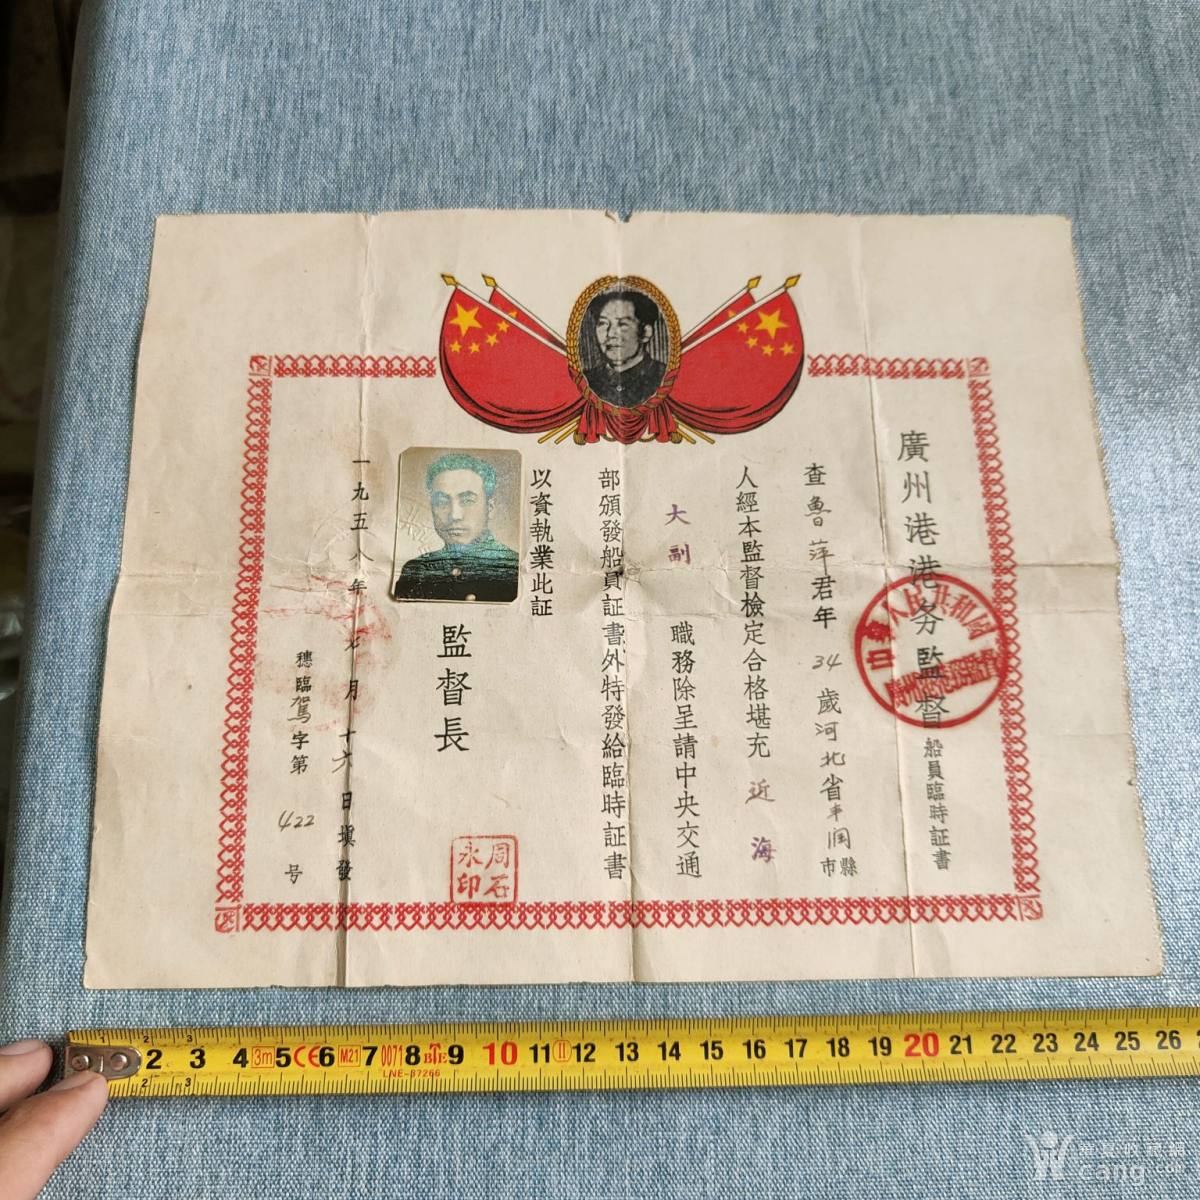 廣州港港务監督船員臨時証書
中華人民共和國
查魯萍君年34歲河北省丰润
市縣
人經本監督檢定合格堪充近海
大副職務除呈請中央交通
部頒發船員証書外特發給臨時証書
以資執業此証
監督長
周石
永印
一九五八年七月十六日填發
穗臨駕字第422号
2 3 4 3m 5 CE 6 M21 7 0071 8 BTE 9 10 11 II 12 13 14 15 16 17 18 19 20 21 22 23 24 25 26
LNE-87266
cang.com